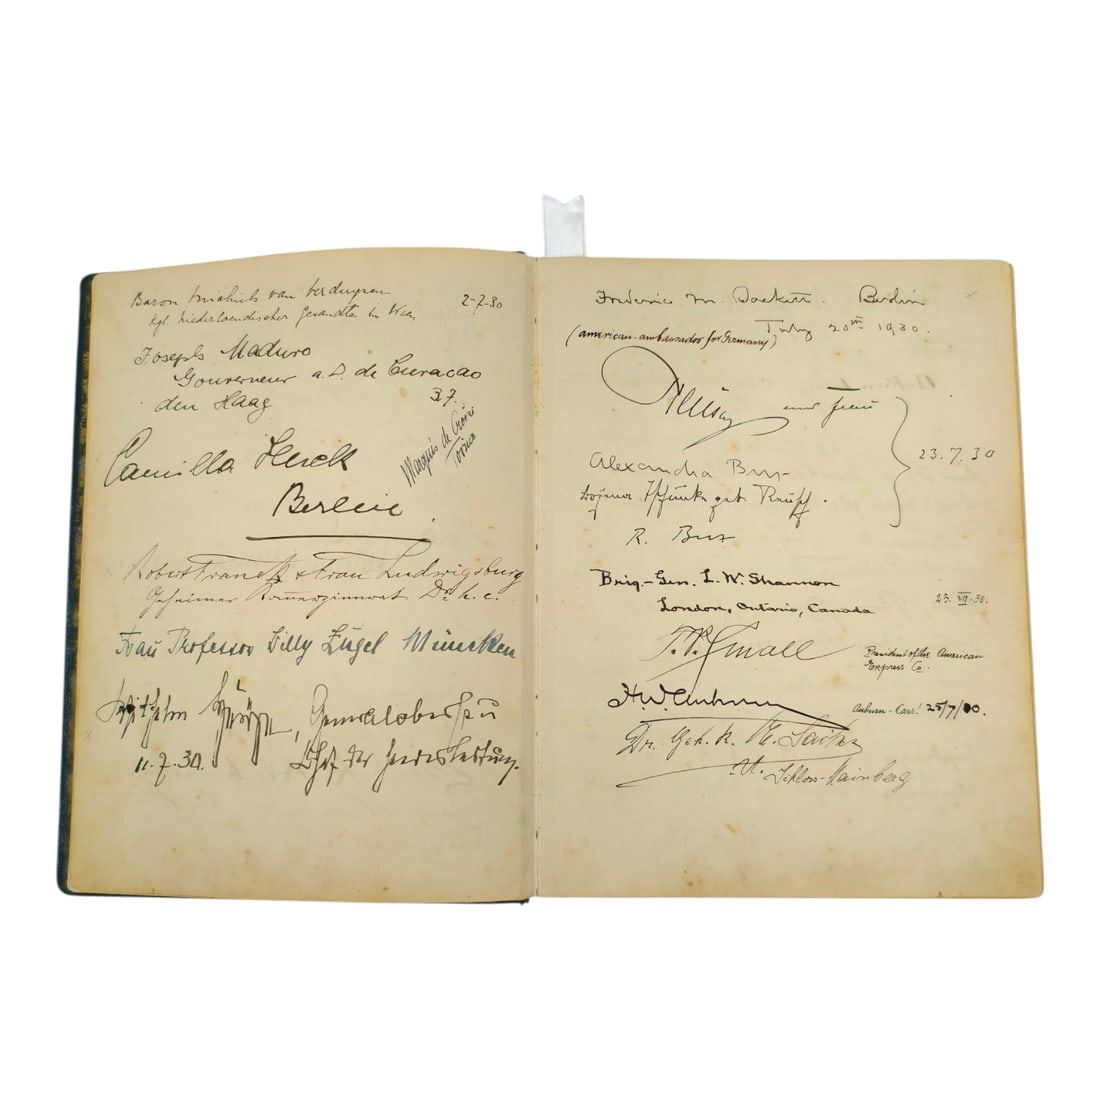 Baron Michiels van Verduynen 2-7-30
kgl. niederlaendischer Gesandte in Wien
Joseph Maduro
Gouverneur a.D. de Curacao
den Haag 3.7.
Marquis de
Torino
Camilla Huck
Berlin
Robert Franck & Frau Ludwigsburg
Geheimer Kommerzienrat Dr. h. c.
Frau Professor Lilly Zügel München
Wilhelm Heye, Generaloberst u
11.7.30. Chef der Heeresleitung.
Frederic M. Sackett. Berlin
July 20th 1930.
(american-ambassador for Germany)
und Frau
23.7.30
Alexandra
geb. Reusch.
R.
Brig.-Gen. L. W. Shannon
London, Ontario, Canada 23.VII.30.
F. P. Small President of the American
Express Co.
Auburn-Cars! 25/7/30.
Dr. Geh. k. E. Sachs
Schloss-Mainberg